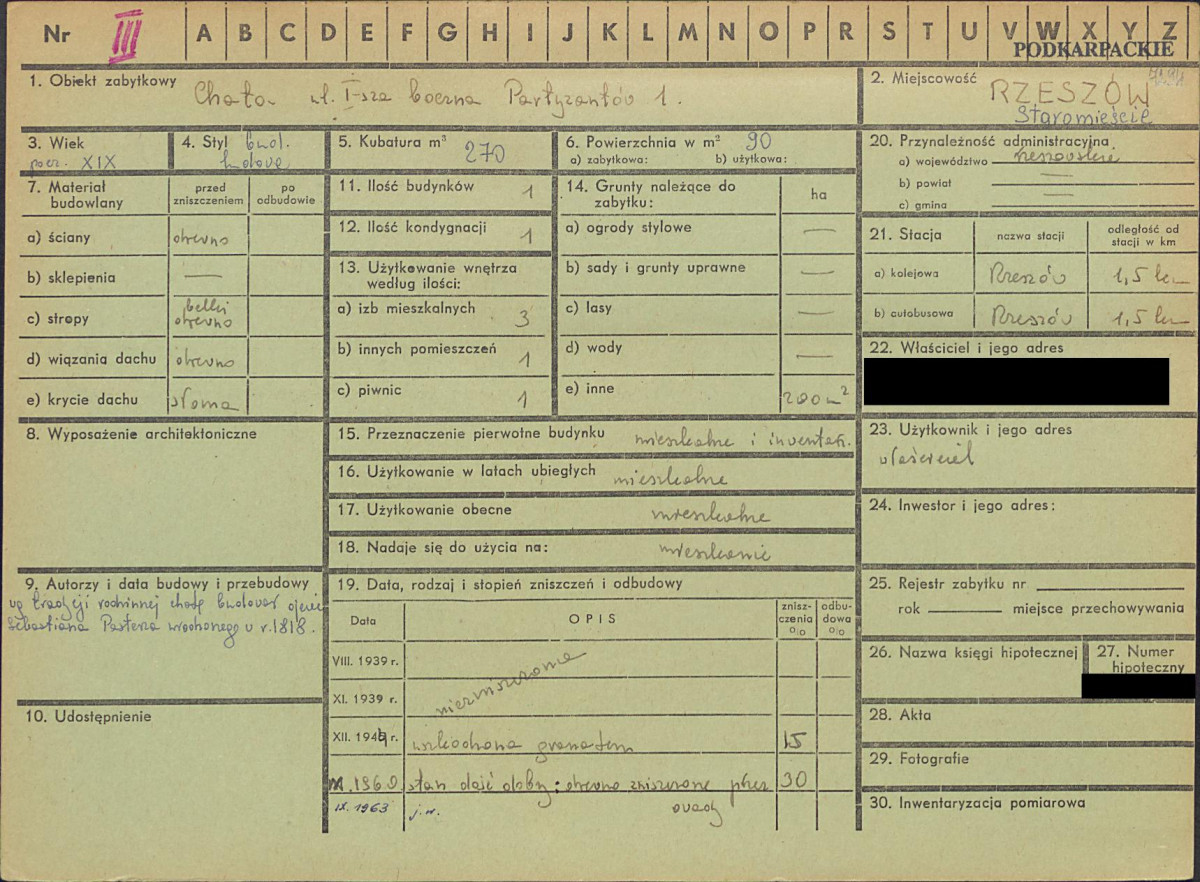 Nr III A B C D E F G H I J K L M N O P R S T U V W X Y Z
PODKARPACKIE
1. Obiekt zabytkowy Chata ul. I-sza boczna Partyzantów 1.
2. Miejscowość RZESZÓW
Staromieście
3. Wiek
pocz. XIX
4. Styl bud.
ludowe
5. Kubatura m³ 270
6. Powierzchnia w m² 90
a) zabytkowa: b) użytkowa:
20. Przynależność administracyjna
a) województwo rzeszowskie
b) powiat —
c) gmina —
7. Materiał budowlany
przed zniszczeniem
po odbudowie
a) ściany drewno
b) sklepienia —
c) stropy belki
drewno
d) wiązania dachu drewno
e) krycie dachu słoma
11. Ilość budynków 1
12. Ilość kondygnacji 1
13. Użytkowanie wnętrza
według ilości:
a) izb mieszkalnych 3
b) innych pomieszczeń 1
c) piwnic 1
14. Grunty należące do
zabytku: ha
a) ogrody stylowe —
b) sady i grunty uprawne —
c) lasy —
d) wody —
e) inne 200 m²
21. Stacja nazwa stacji odległość od
stacji w km
a) kolejowa Rzeszów 1,5 km
b) autobusowa Rzeszów 1,5 km
22. Właściciel i jego adres
8. Wyposażenie architektoniczne
15. Przeznaczenie pierwotne budynku mieszkalne i inwentarz.
16. Użytkowanie w latach ubiegłych mieszkalne
17. Użytkowanie obecne mieszkalne
18. Nadaje się do użycia na: mieszkanie
23. Użytkownik i jego adres
właściciel
24. Inwestor i jego adres:
9. Autorzy i data budowy i przebudowy
wg tradycji rodzinnej chatę budował ojciec
Sebastiana Pasterza urodzonego w r. 1818.
10. Udostępnienie
19. Data, rodzaj i stopień zniszczeń i odbudowy
Data OPIS znisz-
czenia
% odbu-
dowa
%
VIII. 1939 r.
XI. 1939 r. niezniszczona
XII. 1944 r. uszkodzona granatem 15
1960. stan dość dobry; drewno zniszczone przez 30
owady
IX. 1963 j.w.
25. Rejestr zabytku nr
rok miejsce przechowywania
26. Nazwa księgi hipotecznej
27. Numer
hipoteczny
28. Akta
29. Fotografie
30. Inwentaryzacja pomiarowa